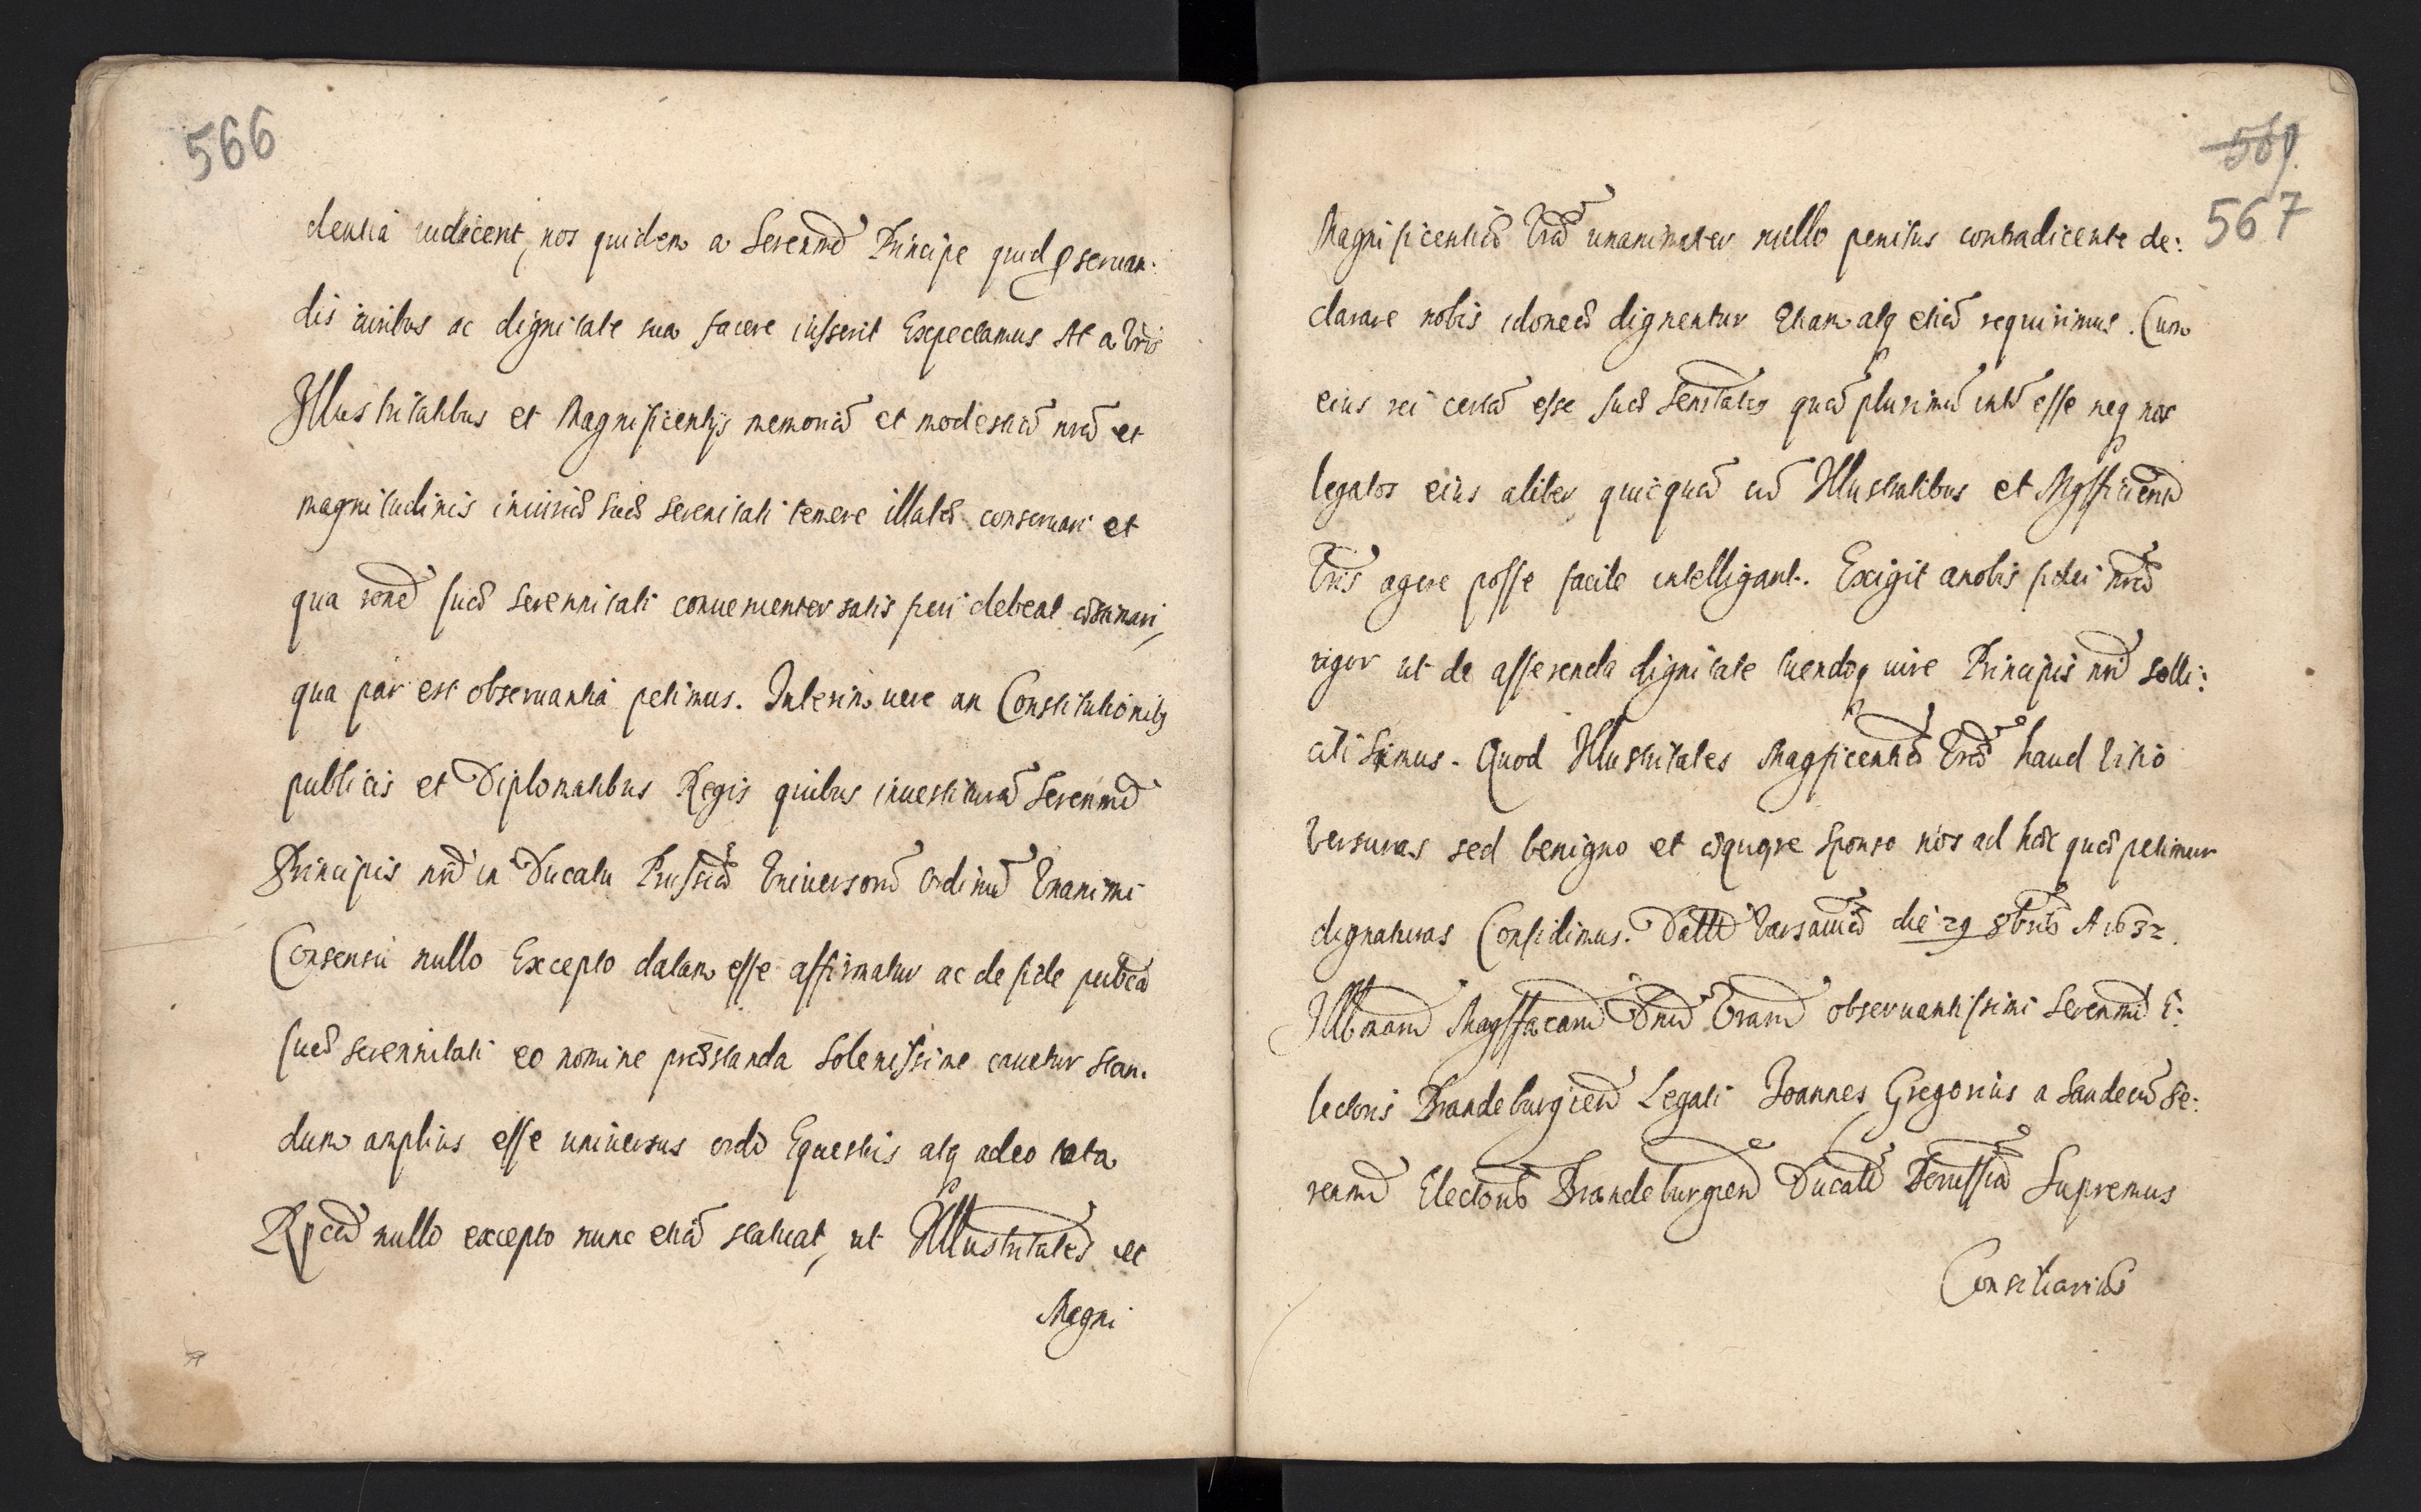 566
dentia iudicent, nos quidem a Serenmo Principe quid pseruan-
dis iuribus ac dignitate sua facere iusserit Expectamus At a Vris
Illustritatibus et Magnificentijs memoriã et modestiã nrã et
magnitudinis iniuriæ suæ serenitati temere illatæ conseruari et
qua rone suæ serennitati conuenienter satis fieri debeat
qua par est obseruantia petimus. Interim uere an Constitutionib9
publicis et Diplomatibus Regis quibus inuestiturã Serenmi
Principis nri in Ducatu Prussiæ Vniversorũ ordinũ Vnanimi
Consensu nullo Excepto datam esse affirmatur ac de fide publica
suæ serennitati eo nomine præstanda Solenissime cauetur stan-
dum amplius esse uniuersus ordo Equestris atq adeo tota
Rpca nullo excepto nunc etiã statuat, ut Illustritates et
Magni
569.
567
Magnificentiæ Vræ unanimiter nullo penitus contradicente de:
clarare nobis idonee dignentur Etiam atq etiã requirimus. Cum
eius rei certã esse suæ Senitatis quã plurimũ intr esse neq nos
legatos eius aliter quicquã cũ Illustratibus et Mgfficien
Vris agere posse facile intelligant. Exigit anobis fidei nræ
rigor ut de asserenda dignitate tuendoq iure Principis nri solli:
citi simus. Quod Illustritates Magficentiæ Vræ haud Vitio
Versuras sed benigno et æquoqre sponso nos ad hæc quæ petimur
dignaturas Confidimus. Datt Varsauiæ die 29 8bris A 1632.
Illmarũ Magffacarũ Dnũ Vrarũ obseruantissimi Serenmi E:
lectoris Brandeburgien Legati Joannes Gregorius a Saudecũ Se:
renmi Electoris Brandeburgien Ducatũ Borussiæ Supremus
Consiliarius